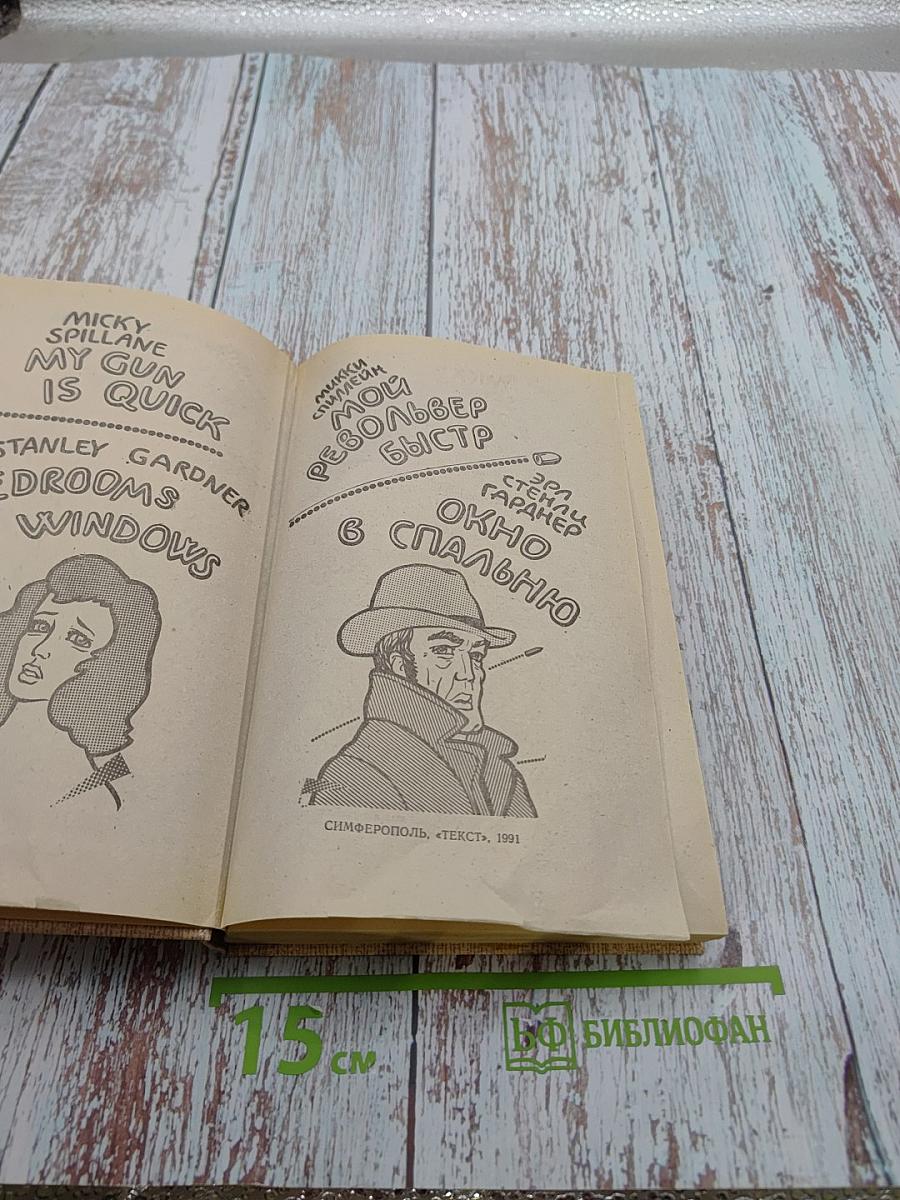 MICKY
SPILLANE
MY GUN
IS QUICK
STANLEY GARDNER
EDROOMS
WINDOWS
МИККИ
СПИЛЛЕЙН
МОЙ
РЕВОЛЬВЕР
БЫСТР
ЭРЛ
СТЕНЛИ
ГАРДНЕР
ОКНО
В СПАЛЬНЮ
СИМФЕРОПОЛЬ, «ТЕКСТ», 1991
15 см
БФ БИБЛИОФАН